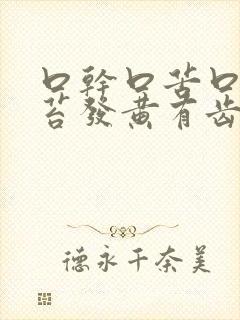 口幹口苦口
苔發黄有齿
德永千奈美